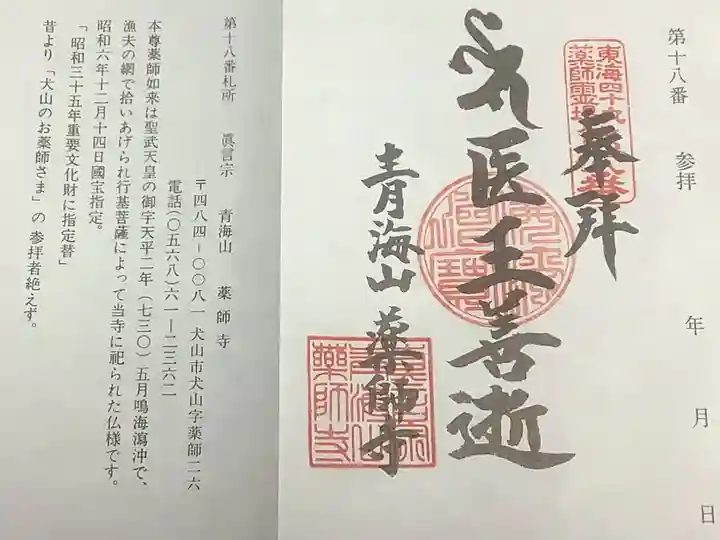 第十八番 参拝 年 月 日
東海四十九
薬師霊場
奉拝
医王善逝
青海山 薬師寺
第十八番札所 眞言宗 青海山 薬師寺
〒四八四−〇〇八一 犬山市犬山字薬師二六
電話(〇五六八)六一−二三六二
本尊薬師如来は聖武天皇の御字天平二年(七三〇)五月鳴海潟沖で、
漁夫の網で拾いあげられ行基菩薩によって当寺に祀られた仏様です。
昭和六年十二月十四日國宝指定。
「昭和三十五年重要文化財に指定替」
昔より「犬山のお薬師さま」の参拝者絶えず。